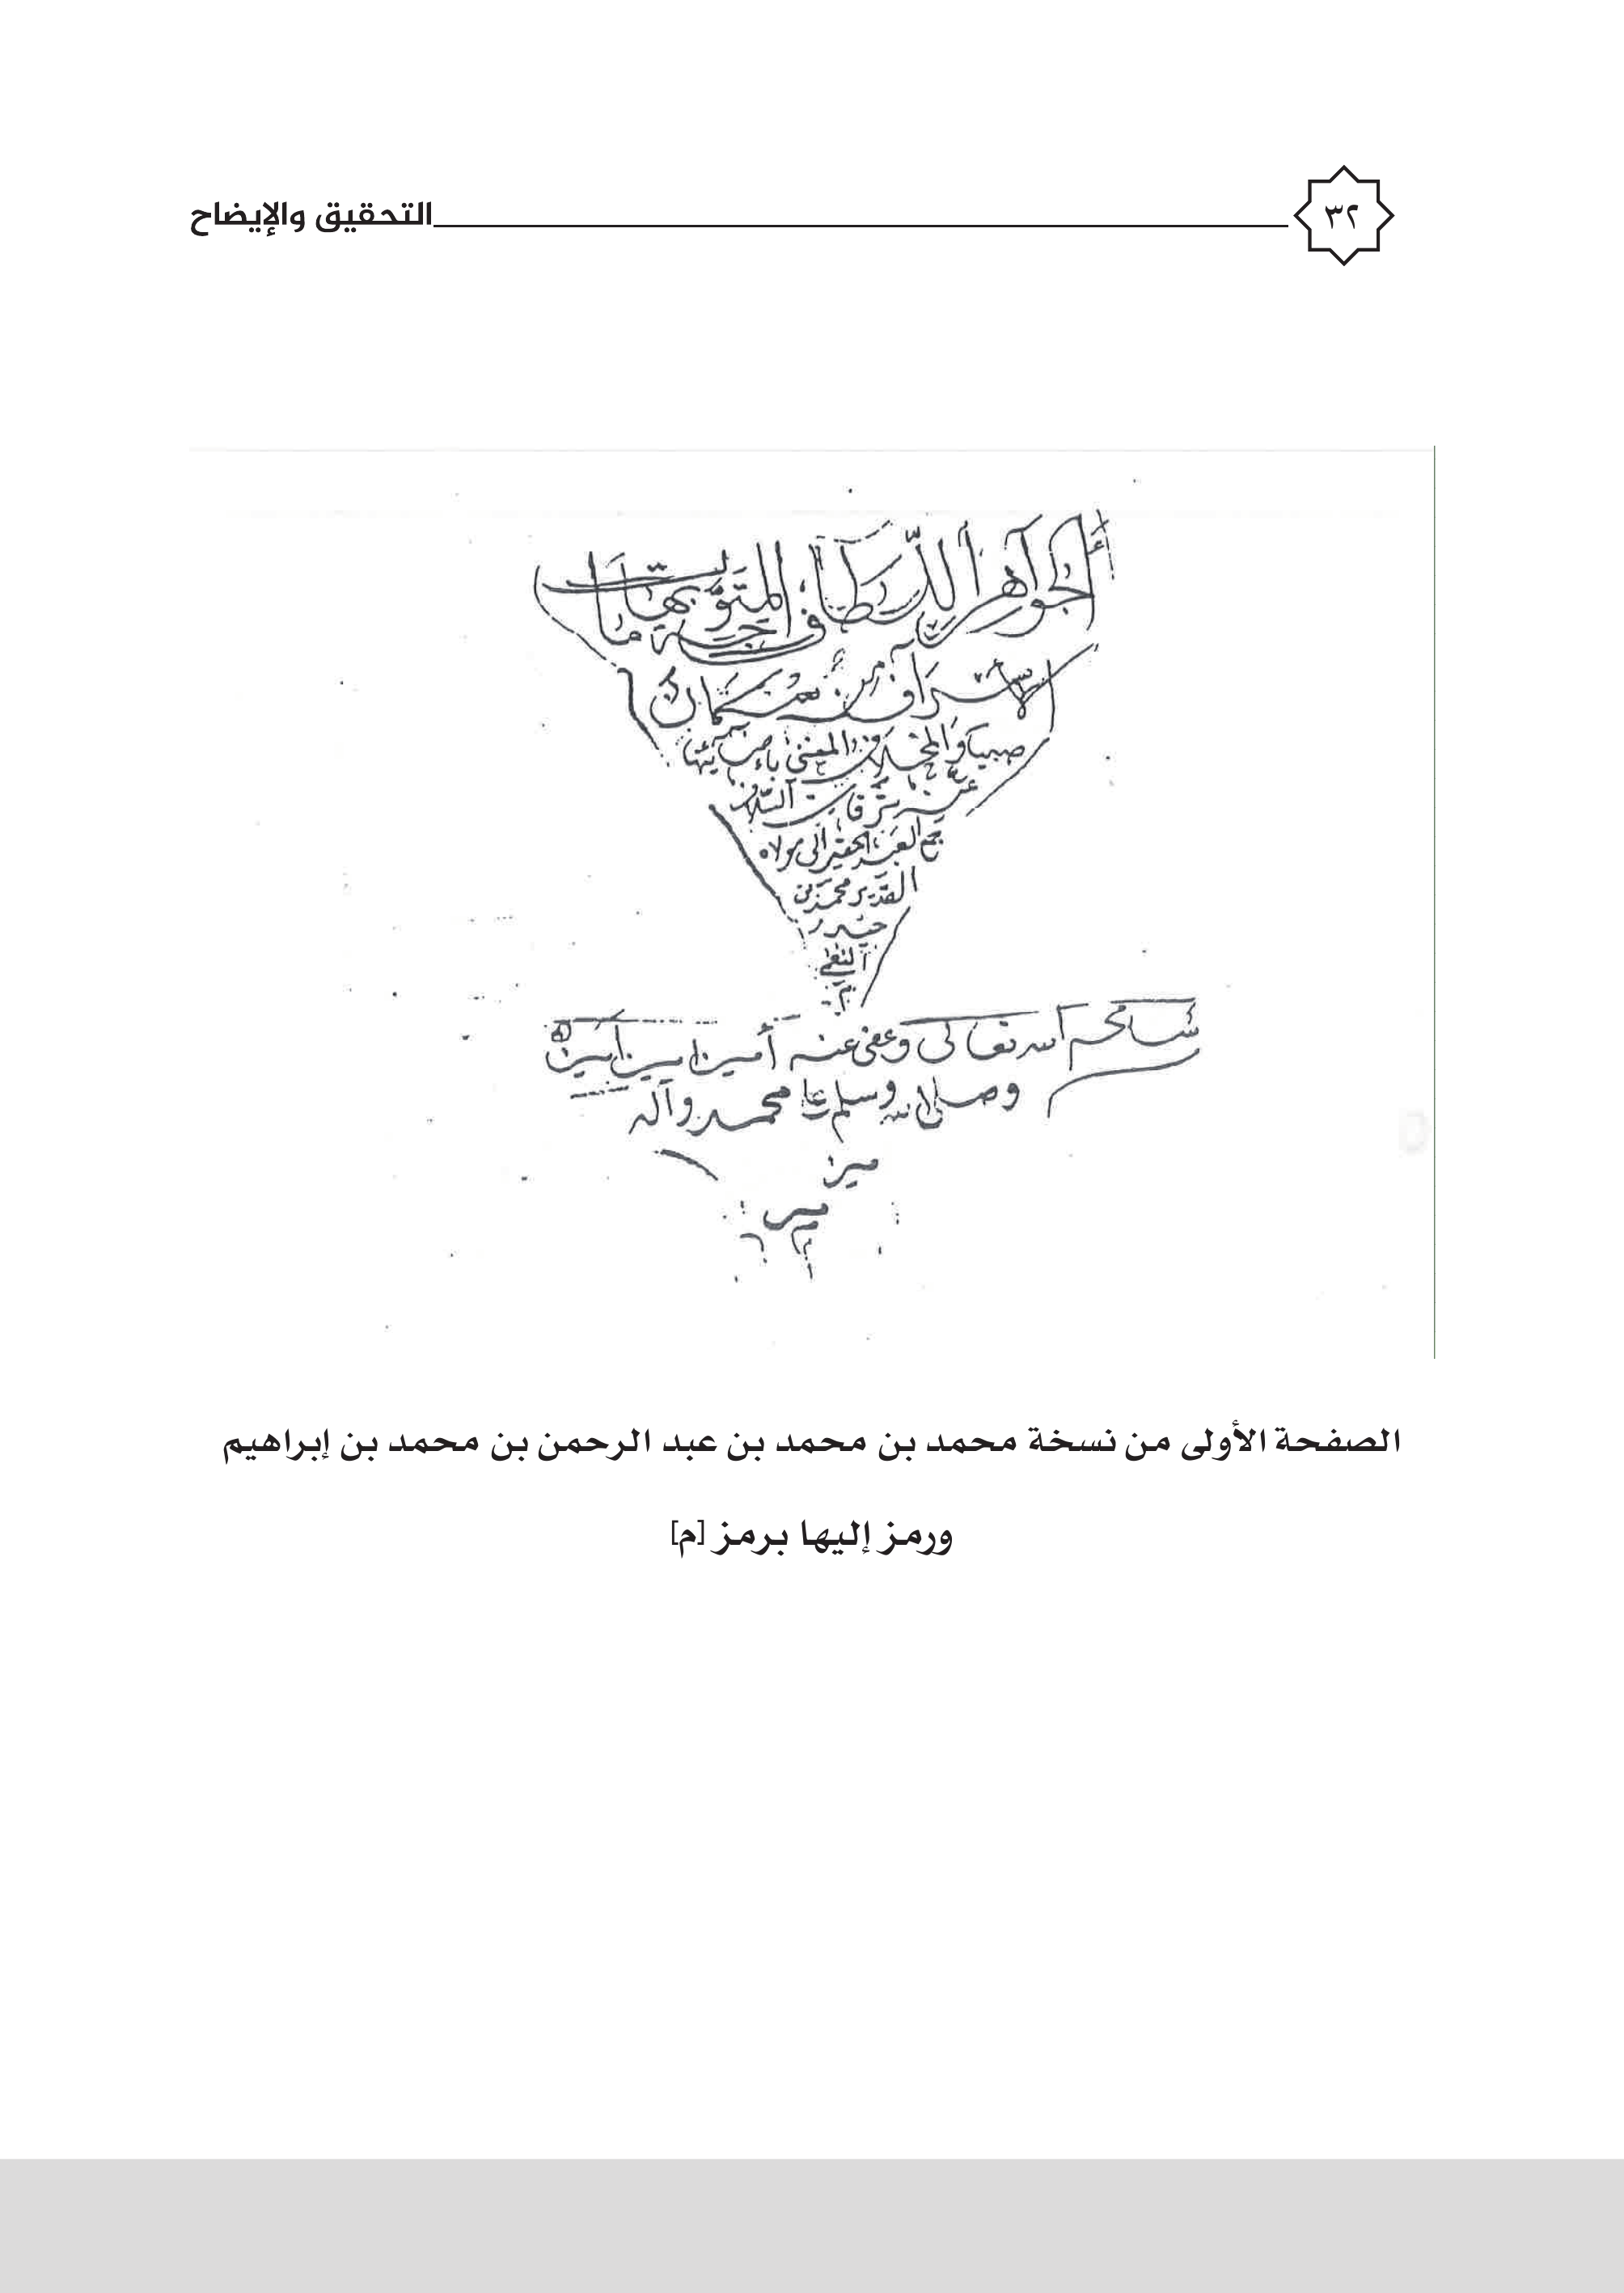 التحقيق والإيضاح ٣٢
الجواهر اللطاف المتوج بهامات
الأشراف من سكان
صبيا والمخلاف
جمع العبد الحقير إلى مولاه
القدير محمد بن
حيدر
النعمي
سامحه الله تعالى وعفى عنه أمين أمين أمين
وصلى الله وسلم على محمد وآله
الصفحة الأولى من نسخة محمد بن محمد بن عبد الرحمن بن محمد بن إبراهيم
ورمز إليها برمز [م]